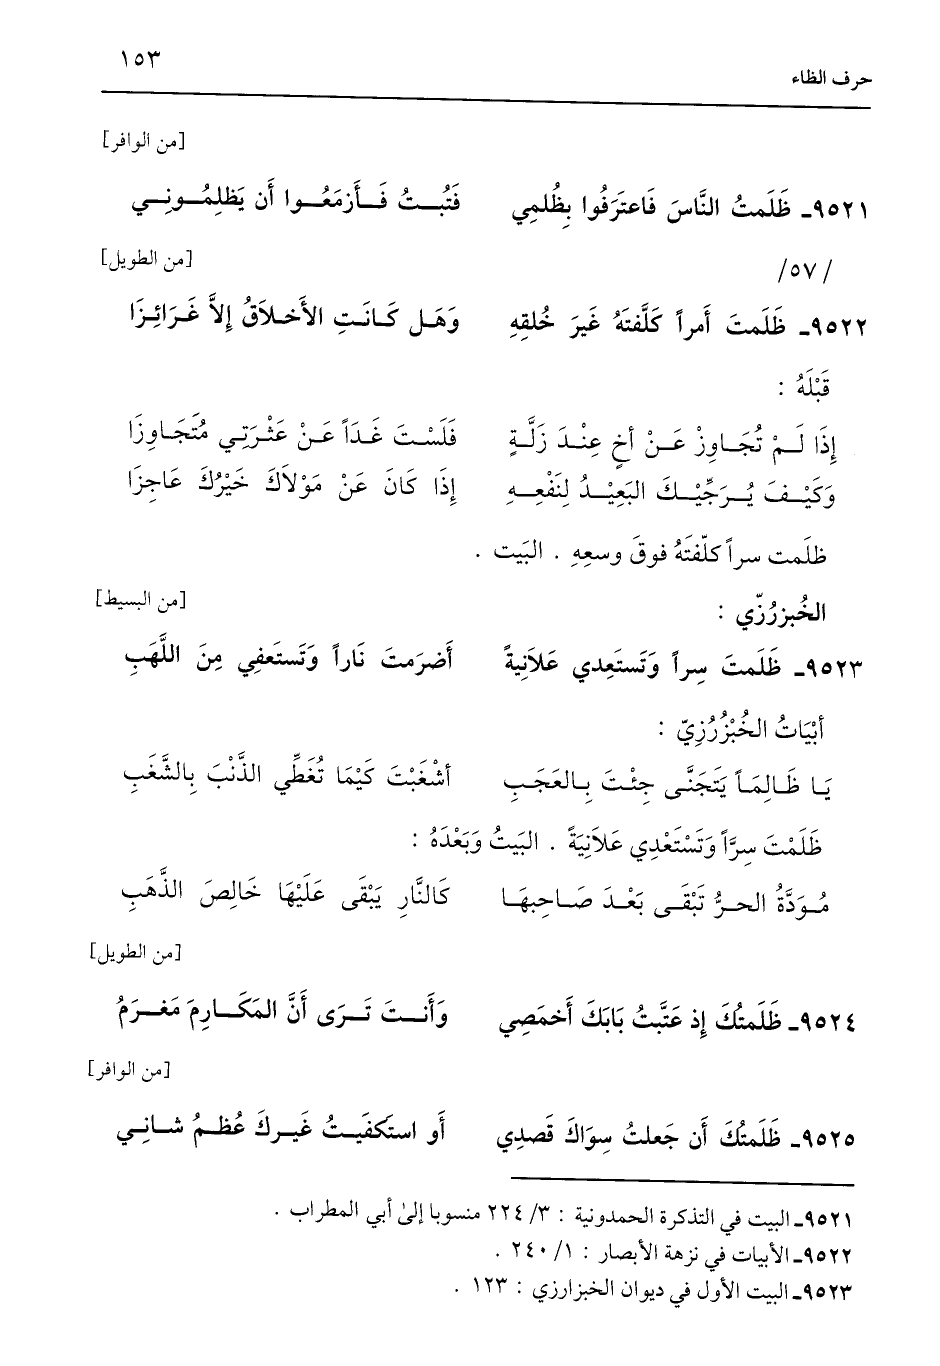 حرف الظاء ١٥٣
[من الوافر]
٩٥٢١ـ ظَلَمتُ النَّاسَ فَاعتَرَفُوا بِظُلمِي فَتُبــتُ فَــأَزمَعُــوا أَن يَظلِمُــونِــي
/٥٧/ [من الطويل]
٩٥٢٢ـ ظَلَمتَ أَمراً كَلَّفتَهُ غَيرَ خُلقِهِ وَهَـل كَـانَـتِ الأَخـلاَقُ إِلاَّ غَـرَائِـزَا
قَبْلَهُ :
إِذَا لَـمْ تُجَـاوِزْ عَـنْ أخٍ عِنْـدَ زَلَّـةٍ فَلَسْـتَ غَـدَاً عَـنْ عَثْـرَتِـي مُتَجَـاوِزَا
وَكَيْـفَ يُـرَجِّيْـكَ البَعِيْـدُ لِنَفْعِـهِ إِذَا كَانَ عَنْ مَوْلاَكَ خَيْرُكَ عَاجِزَا
ظلَمت سراً كلّفتَهُ فوقَ وسعِهِ . البَيت .
الخُبزرُزّي : [من البسيط]
٩٥٢٣ـ ظَلَمتَ سِراً وَتَستَعِدي عَلاَنِيةً أَضرَمتَ نَاراً وَتَستَعفِي مِنَ اللَّهَبِ
أبْيَاتُ الخُبْزُرُزِيّ :
يَـا ظَـالِمَـاً يَتَجَنَّـى جِئْـتَ بِـالعَجَـبِ أشْغَبْتَ كَيْمَا تُغَطِّي الذَّنْبَ بِالشَّغَبِ
ظَلَمْتَ سِرَّاً وَتَسْتَعْدِي عَلاَنِيَةً . البَيتُ وَبَعْدَهُ :
مُـوَدَّةُ الحـرُّ تَبْقَـى بَعْـدَ صَـاحِبِهَـا كَالنَّارِ يَبْقَى عَلَيْهَا خَالِصَ الذَّهَبِ
[من الطويل]
٩٥٢٤ـ ظَلَمتُكَ إِذ عَتَّبتُ بَابَكَ أَخمَصِي وَأَنــتَ تَــرَى أَنَّ المَكَــارِمَ مَغــرَمُ
[من الوافر]
٩٥٢٥ـ ظَلَمتُكَ أَن جَعلتُ سِوَاكَ قَصدِي أَو استَكفَيـتُ غَيـرِكَ عُظـمُ شـانِـي
٩٥٢١ـ البيت في التذكرة الحمدونية : ٣/ ٢٢٤ منسوبا إلىٰ أبي المطراب .
٩٥٢٢ـ الأبيات في نزهة الأبصار : ١/ ٢٤٠ .
٩٥٢٣ـ البيت الأول في ديوان الخبزارزي : ١٢٣ .